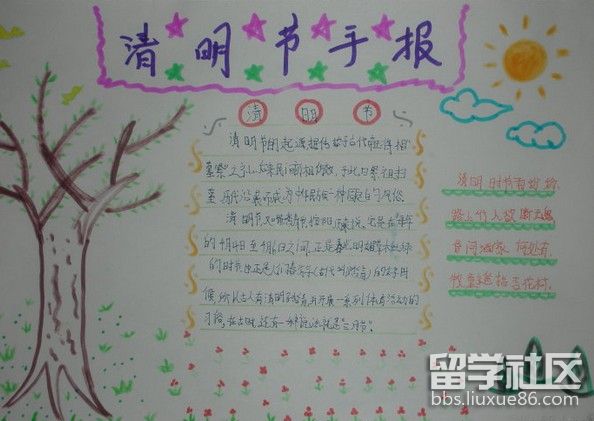 清明节手报
清明节
清明节的起源据传始于古代帝王将相"
墓祭"之礼,后来民间亦相仿效,于此日祭祖扫
墓,历代沿袭而成为中华民族一种固定的风俗。
清明节又叫踏青节,按阳历来说,它是在每年
的4月4日至4月6日之间,正是春光明媚草木吐绿
的时节,也正是人们春游(古代叫踏青)的好时
候,所以古人有清明踏青,并开展一系列体育活动的
习俗。在古时,还有一种说法就是"三月节"。
清明时节雨纷纷,
路上行人欲断魂。
借问酒家何处有,
牧童遥指杏花村。
留学社区
bbs.liuxue86.com